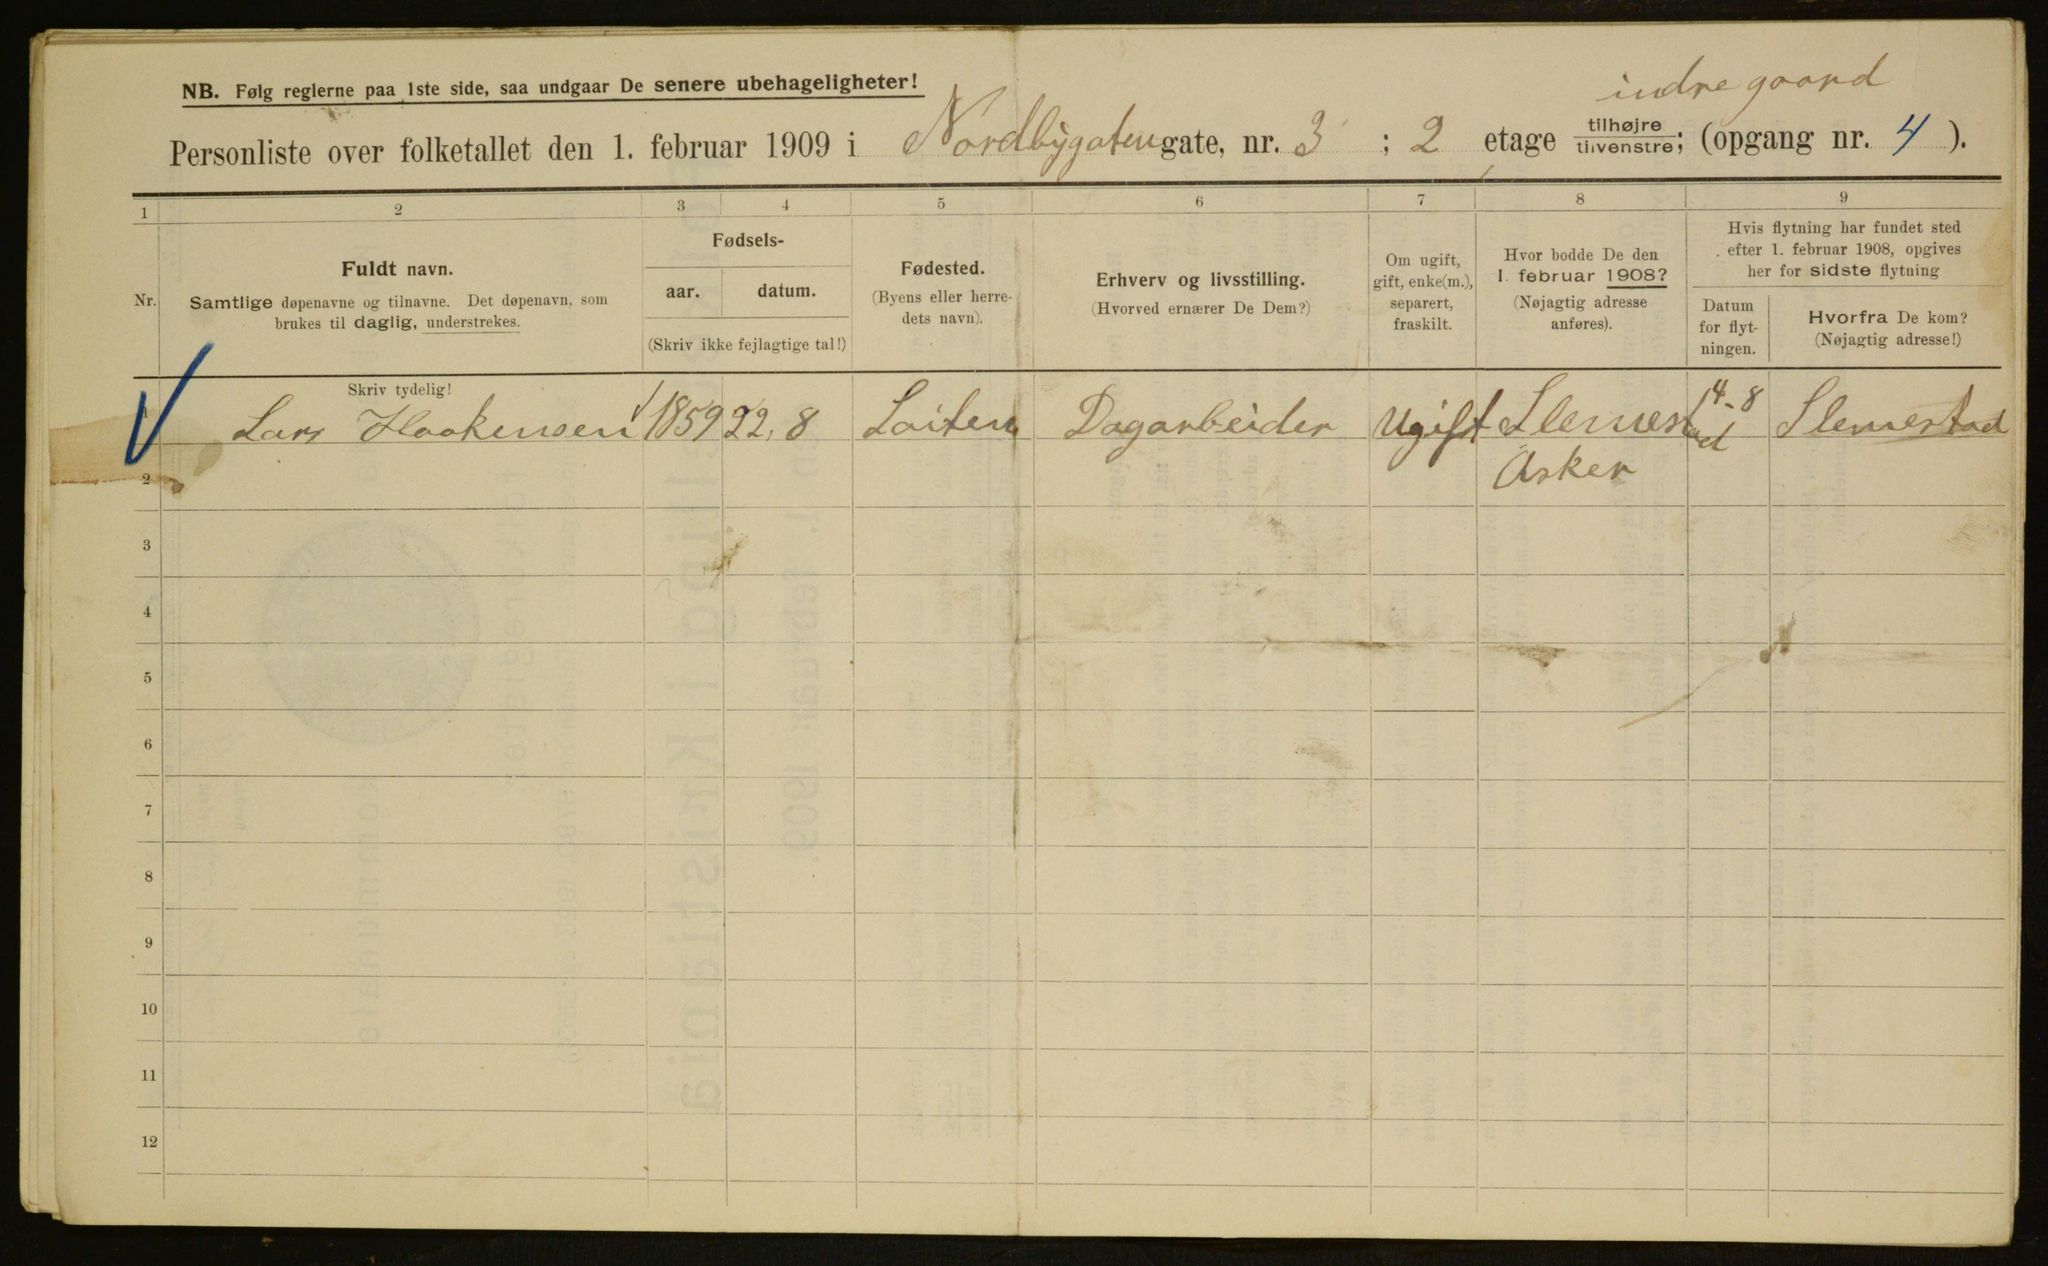 indre gaard
NB. Følg reglerne paa 1ste side, saa undgaar De senere ubehageligheter!
Personliste over folketallet den 1. februar 1909 i Nordbygatengate, nr. 3 ; 2 etage tilhøjre / tilvenstre; (opgang nr. 4 ).
1 2 3 4 5 6 7 8 9
Nr.
Fuldt navn.
Samtlige døpenavne og tilnavne. Det døpenavn, som
brukes til daglig, understrekes.
Fødsels-
aar. datum.
(Skriv ikke fejlagtige tal!)
Fødested.
(Byens eller herre-
dets navn).
Erhverv og livsstilling.
(Hvorved ernærer De Dem?)
Om ugift,
gift, enke(m.),
separert,
fraskilt.
Hvor bodde De den
1. februar 1908?
(Nøjagtig adresse
anføres).
Hvis flytning har fundet sted
efter 1. februar 1908, opgives
her for sidste flytning
Datum
for flyt-
ningen.
Hvorfra De kom?
(Nøjagtig adresse!)
Skriv tydelig!
1 Lars Haakensen 1859 22. 8 Løiten Dagarbeider Ugift Slemestad 14-8 Slemestad
2 Asker
3
4
5
6
7
8
9
10
11
12